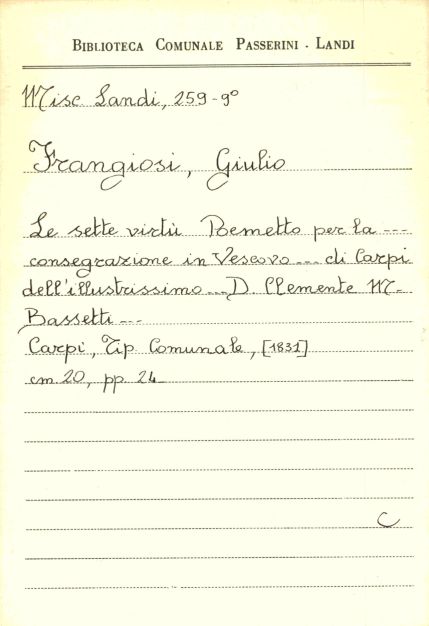 BIBLIOTECA COMUNALE PASSERINI - LANDI
Misc Landi, 259-9°
Frangiosi, Giulio
Le sette virtù Poemetto per la ---
consegrazione in Vescovo --- di Carpi
dell'illustrissimo --- D. Clemente M-
Bassetti ---
Carpi, Tip Comunale, [1831]
cm 20, pp 24
C